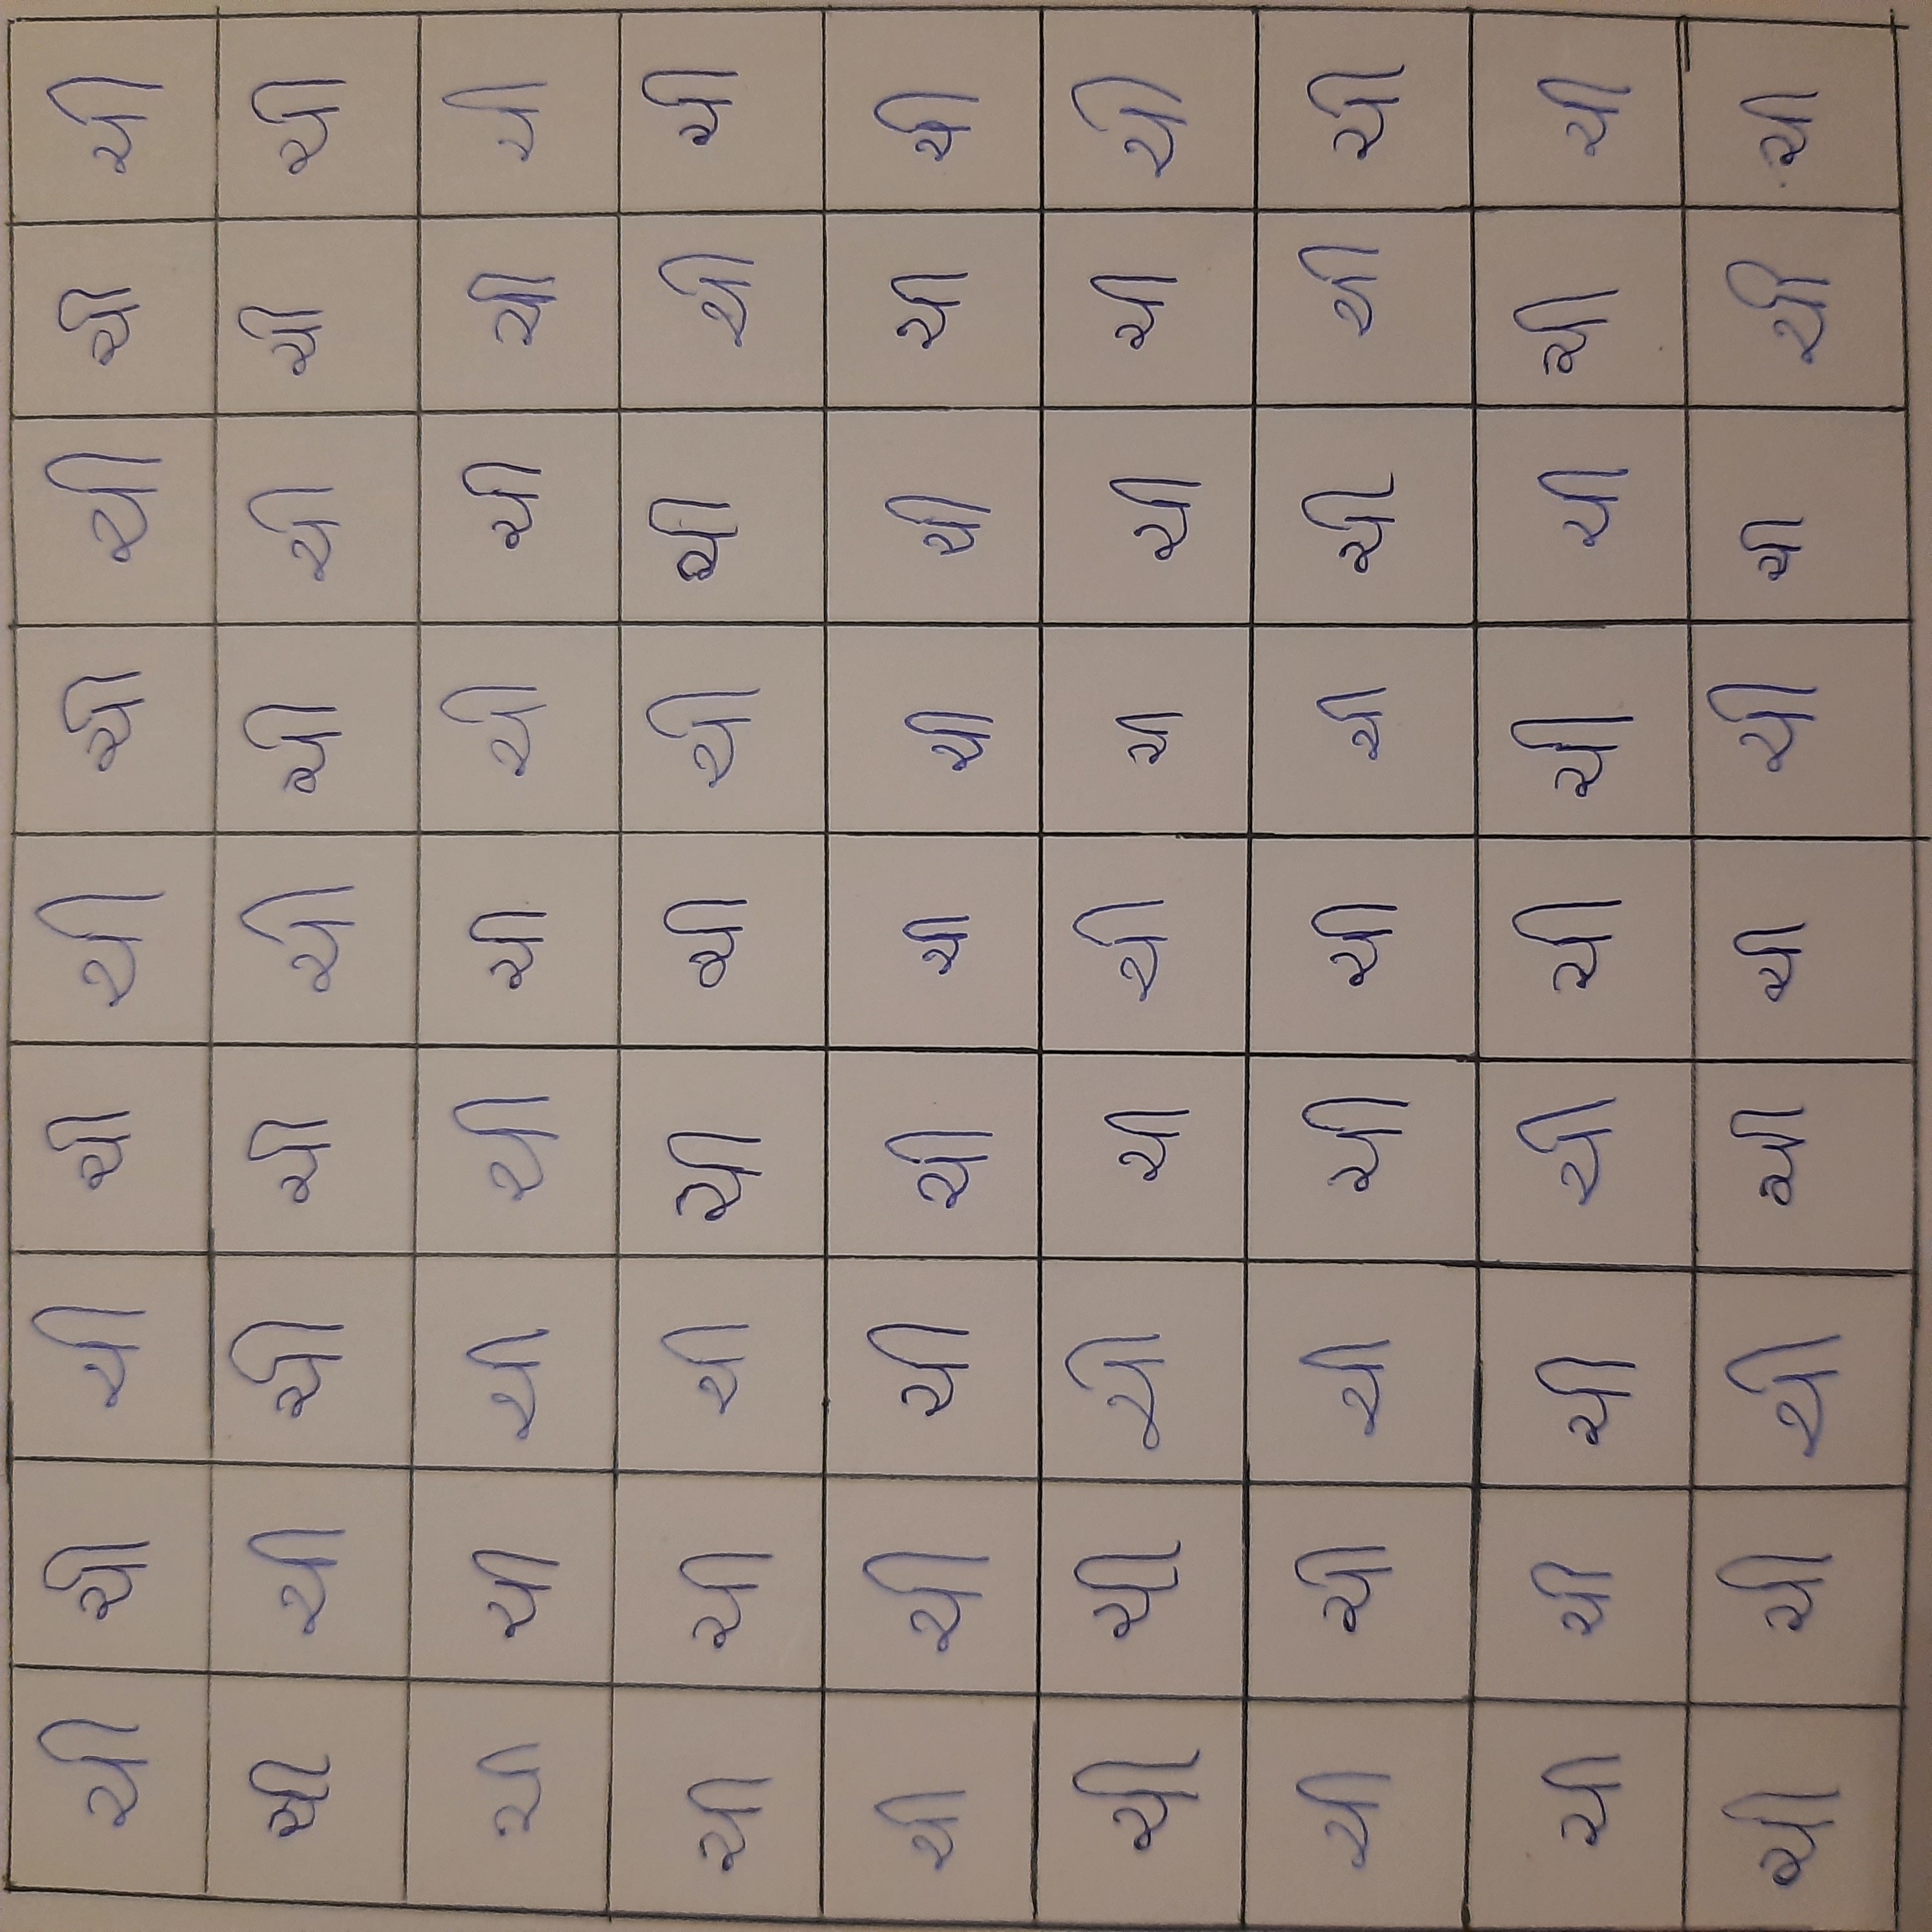 ચી ચી ચી ચી ચી ચી ચી ચી ચી
ચી ચી ચી ચી ચી ચી ચી ચી ચી
ચી ચી ચી ચી ચી ચી ચી ચી ચી
ચી ચી ચી ચી ચી ચી ચી ચી ચી
ચી ચી ચી ચી ચી ચી ચી ચી ચી
ચી ચી ચી ચી ચી ચી ચી ચી ચી
ચી ચી ચી ચી ચી ચી ચી ચી ચી
ચી ચી ચી ચી ચી ચી ચી ચી ચી
ચી ચી ચી ચી ચી ચી ચી ચી ચી